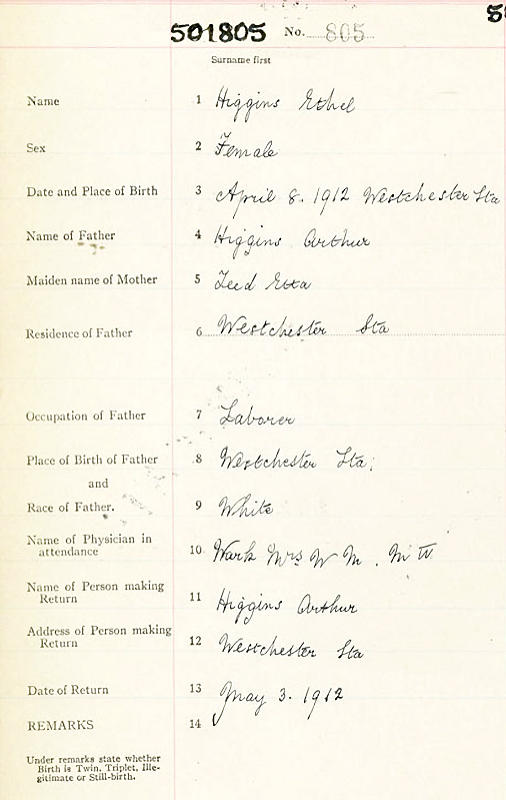 501805 No. 805
Surname first
Name 1 Higgins Ethel
Sex 2 Female
Date and Place of Birth 3 April 8. 1912 Westchester Sta
Name of Father 4 Higgins Arthur
Maiden name of Mother 5 Teed Etta
Residence of Father 6 Westchester Sta
Occupation of Father 7 Laborer
Place of Birth of Father 8 Westchester Sta.
and
Race of Father. 9 White
Name of Physician in
attendance 10 Wark Mrs W M.
Name of Person making
Return 11 Higgins Arthur
Address of Person making
Return 12 Westchester Sta
Date of Return 13 May 3. 1912
REMARKS 14
Under remarks state whether
Birth is Twin, Triplet, Ille-
gitimate or Still-birth.